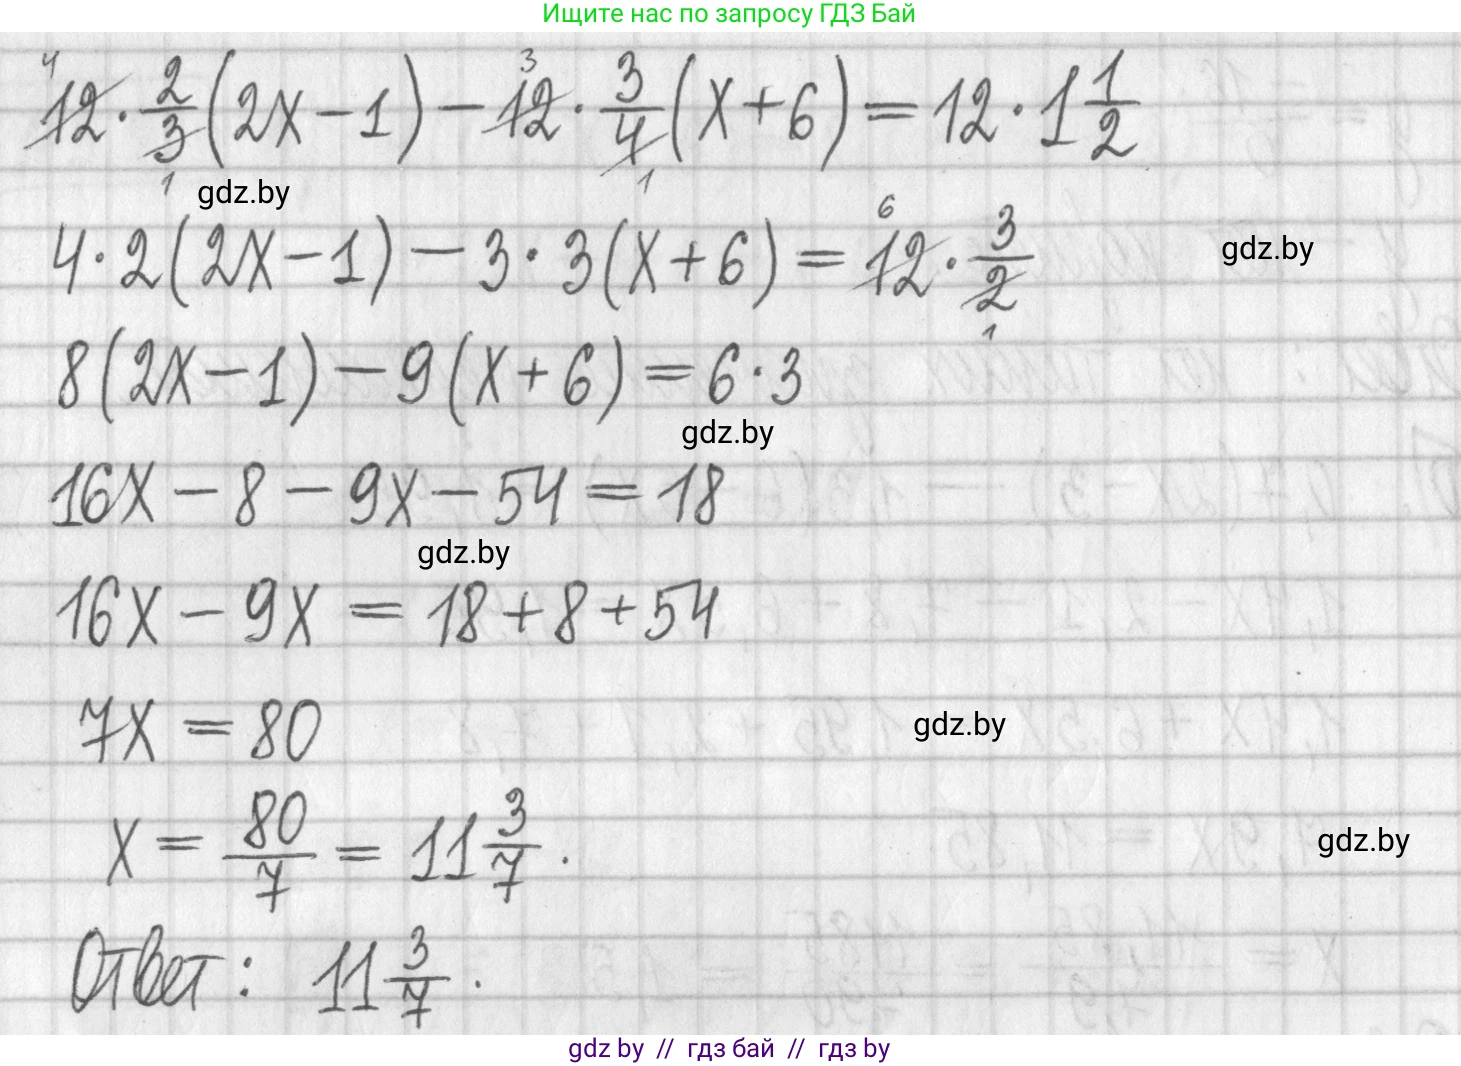 Ищите нас по запросу ГДЗ Бай
12 · 2/3 (2x − 1) − 12 · 3/4 (x + 6) = 12 · 1 1/2
gdz.by
4 · 2 (2x − 1) − 3 · 3 (x + 6) = 12 · 3/2
gdz.by
8 (2x − 1) − 9 (x + 6) = 6 · 3
gdz.by
16x − 8 − 9x − 54 = 18
gdz.by
16x − 9x = 18 + 8 + 54
7x = 80
gdz.by
x = 80/7 = 11 3/7 .
gdz.by
Ответ: 11 3/7 .
gdz by // гдз бай // гдз by